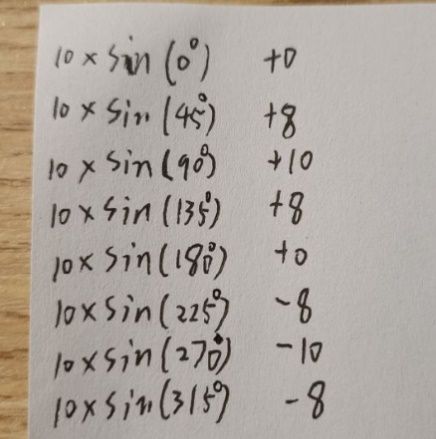 10 × sin (0°) +0
10 × sin (45°) +8
10 × sin (90°) +10
10 × sin (135°) +8
10 × sin (180°) +0
10 × sin (225°) -8
10 × sin (270°) -10
10 × sin (315°) -8